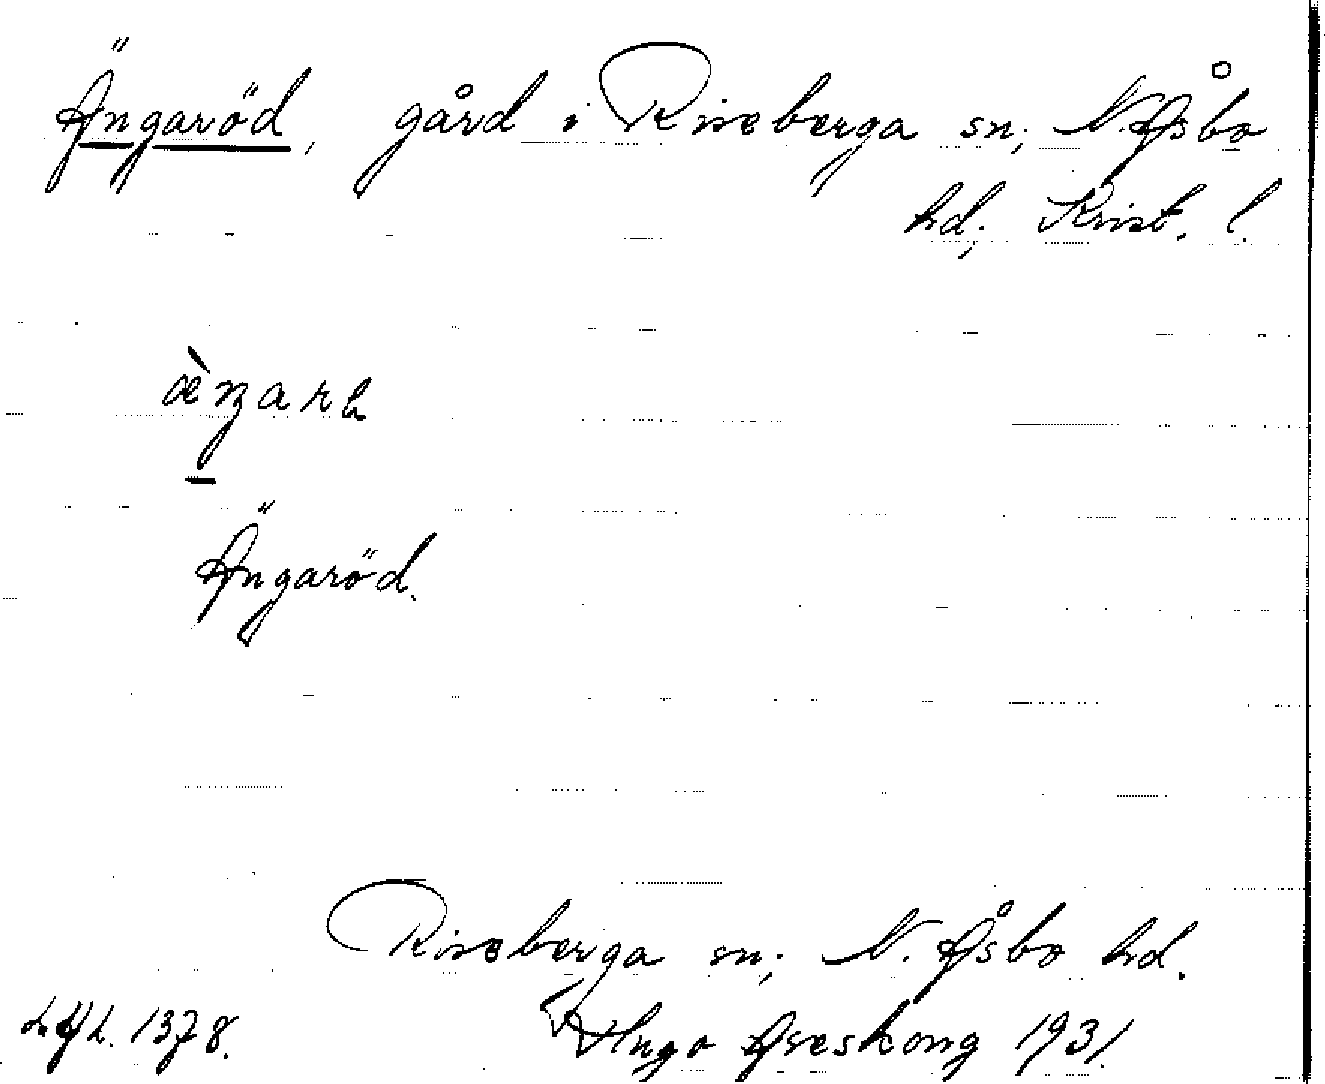 Ängaröd, gård i Riseberga sn; N. Åsbo
hd; Krist. l.
Ängaröd.
Riseberga sn; N. Åsbo hd.
Hugo Areskoug 1931
1378.